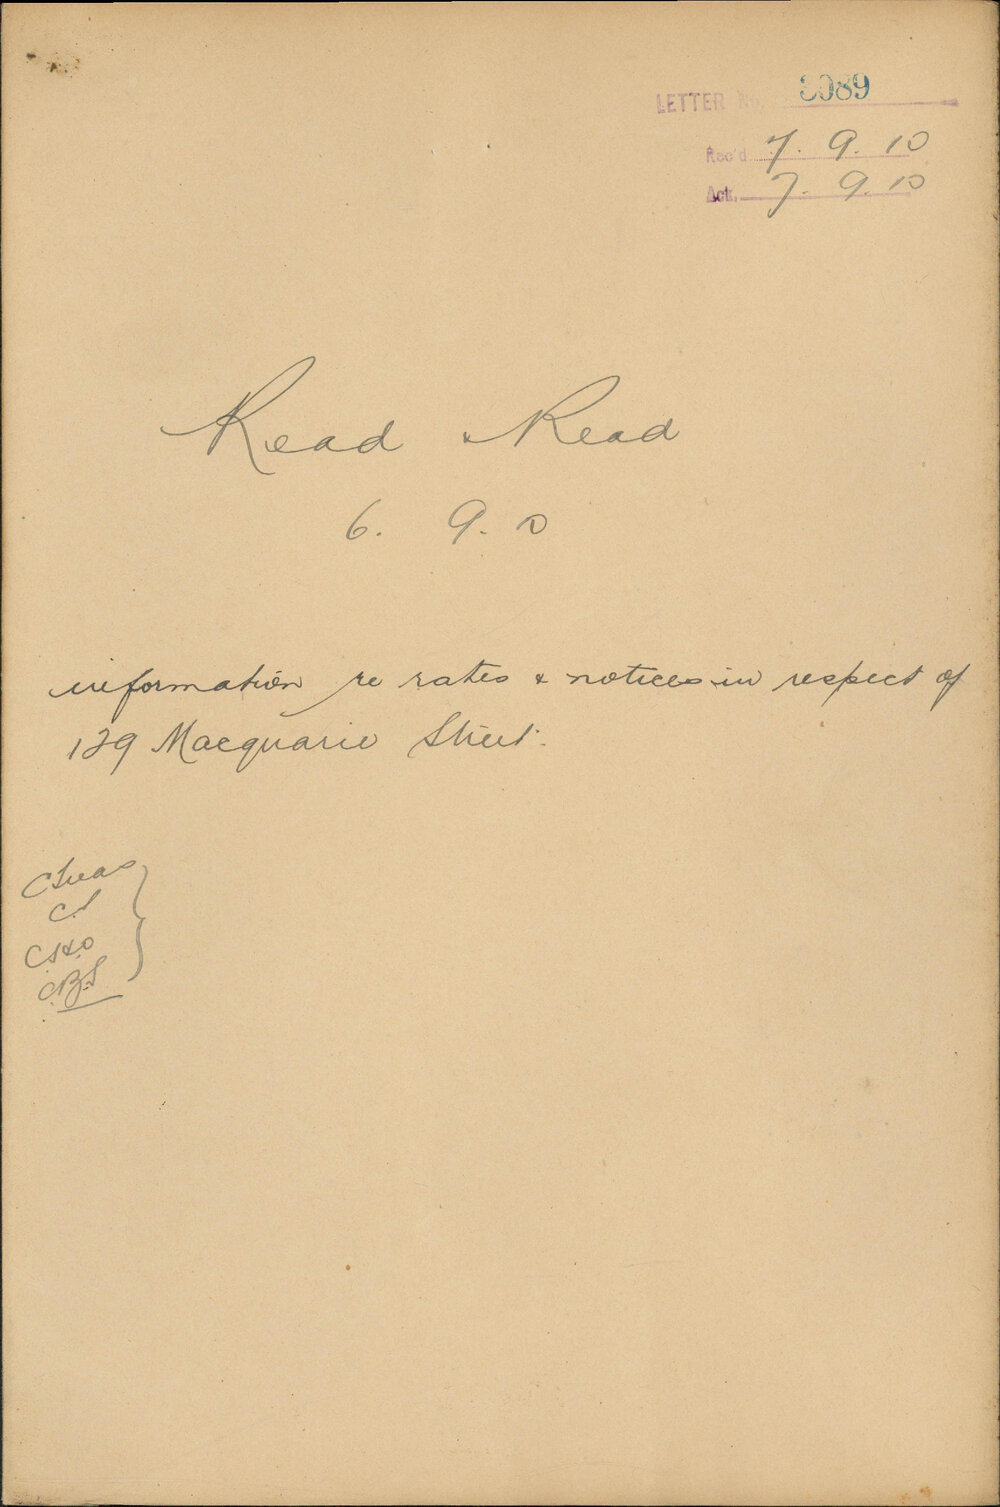 LETTER No. 3089
Rec'd 7. 9. 10
Ack. 7. 9. 10
Read & Read
6. 9. 10
information re rates & notices in respect of
129 Macquarie Street.
C Treas
C.S
C.S & O
C.B.S